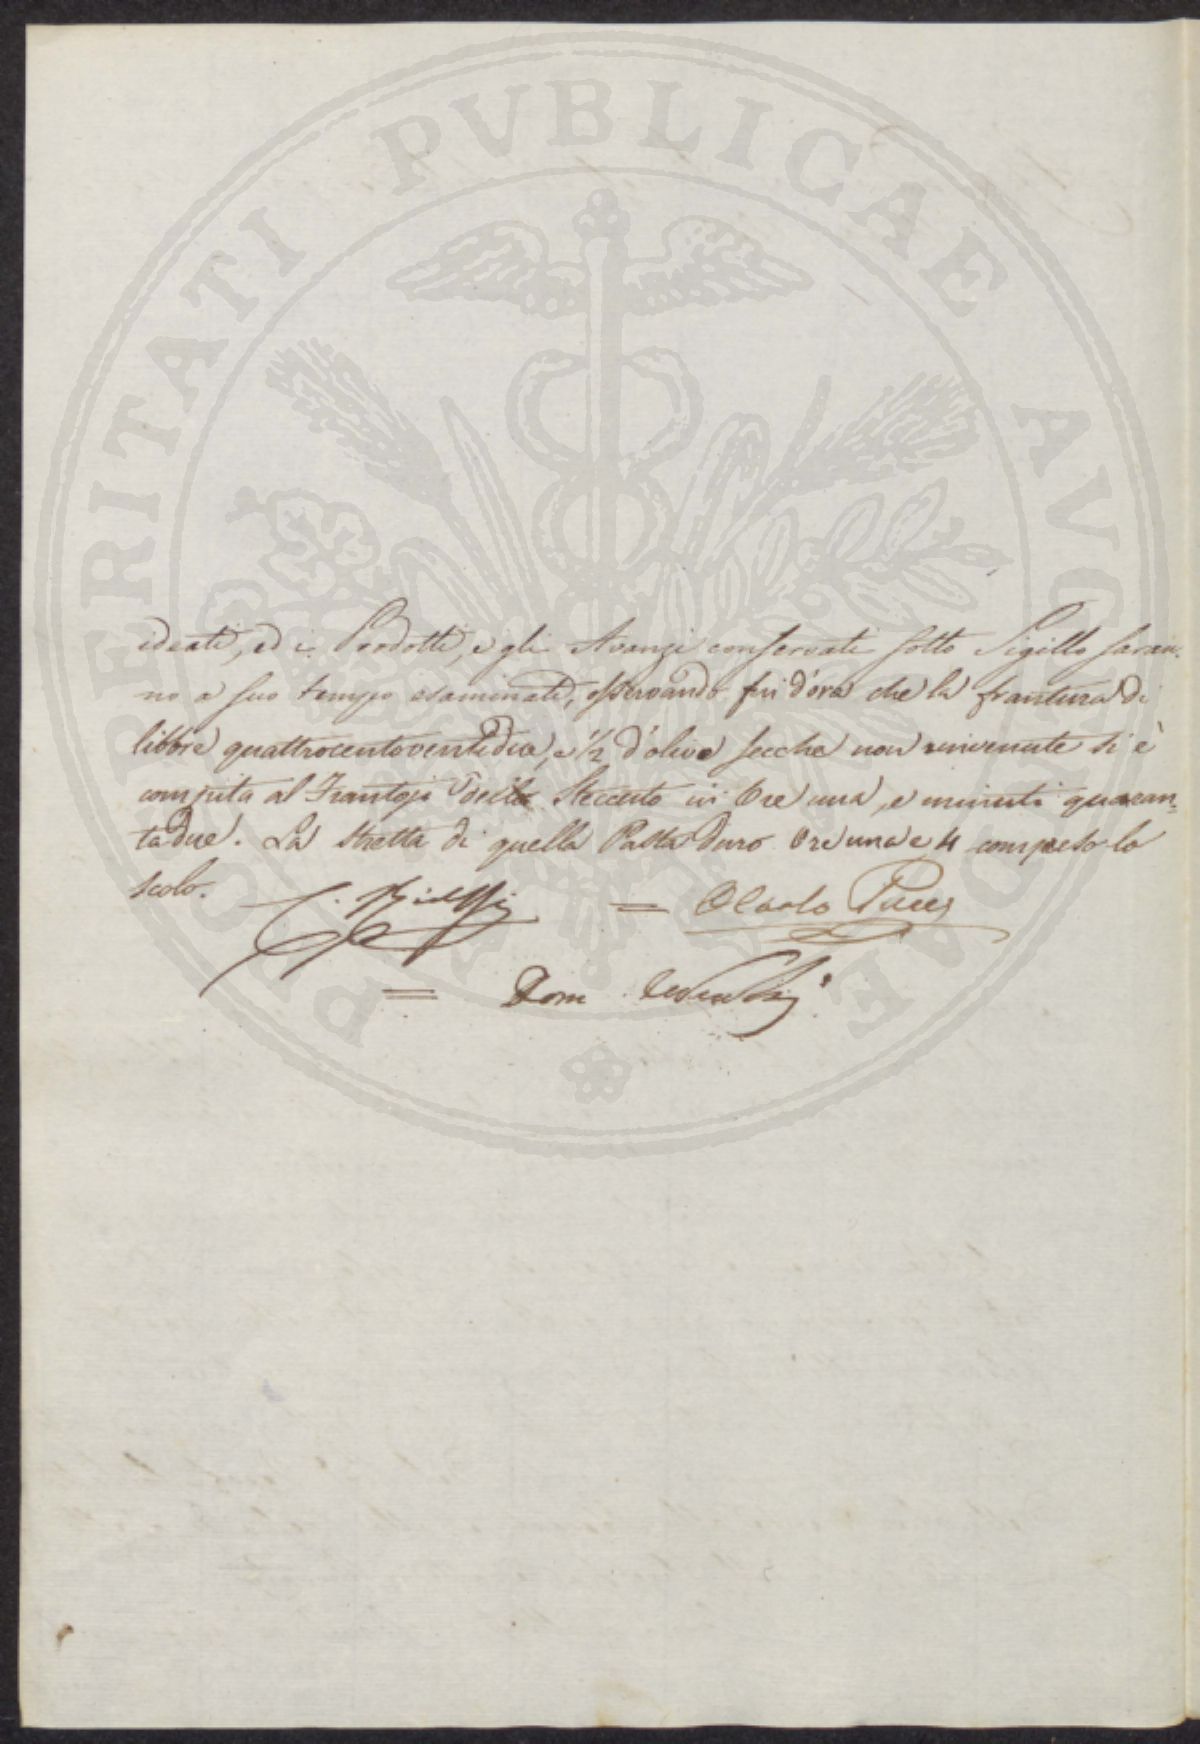 PROSPERITATI PVBLICAE AVGENDAE
ideati, ed i Prodotti, e gli Avanzi conservati sotto Sigillo saran-
no a suo tempo esaminati, osservando fin d'ora che la frantura di
libbre quattrocentoventidue, e 1/2 d'olive secche non rinvenute si è
compita al Frantojo dello Steccuto in Ore una, e minuti quaran-
tadue. La stretta di quella Pasta durò Ore una e 4 compreso lo
scolo.
= Carlo Pucci
= Dom